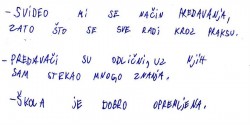 -SVIDEO MI SE NAČIN PREDAVANJA,
ZATO ŠTO SE SVE RADI KROZ PRAKSU.
-PREDAVAČI SU ODLIČNI, UZ NJIH
SAM STEKAO MNOGO ZNANJA.
-ŠKOLA JE DOBRO OPREMLJENA.